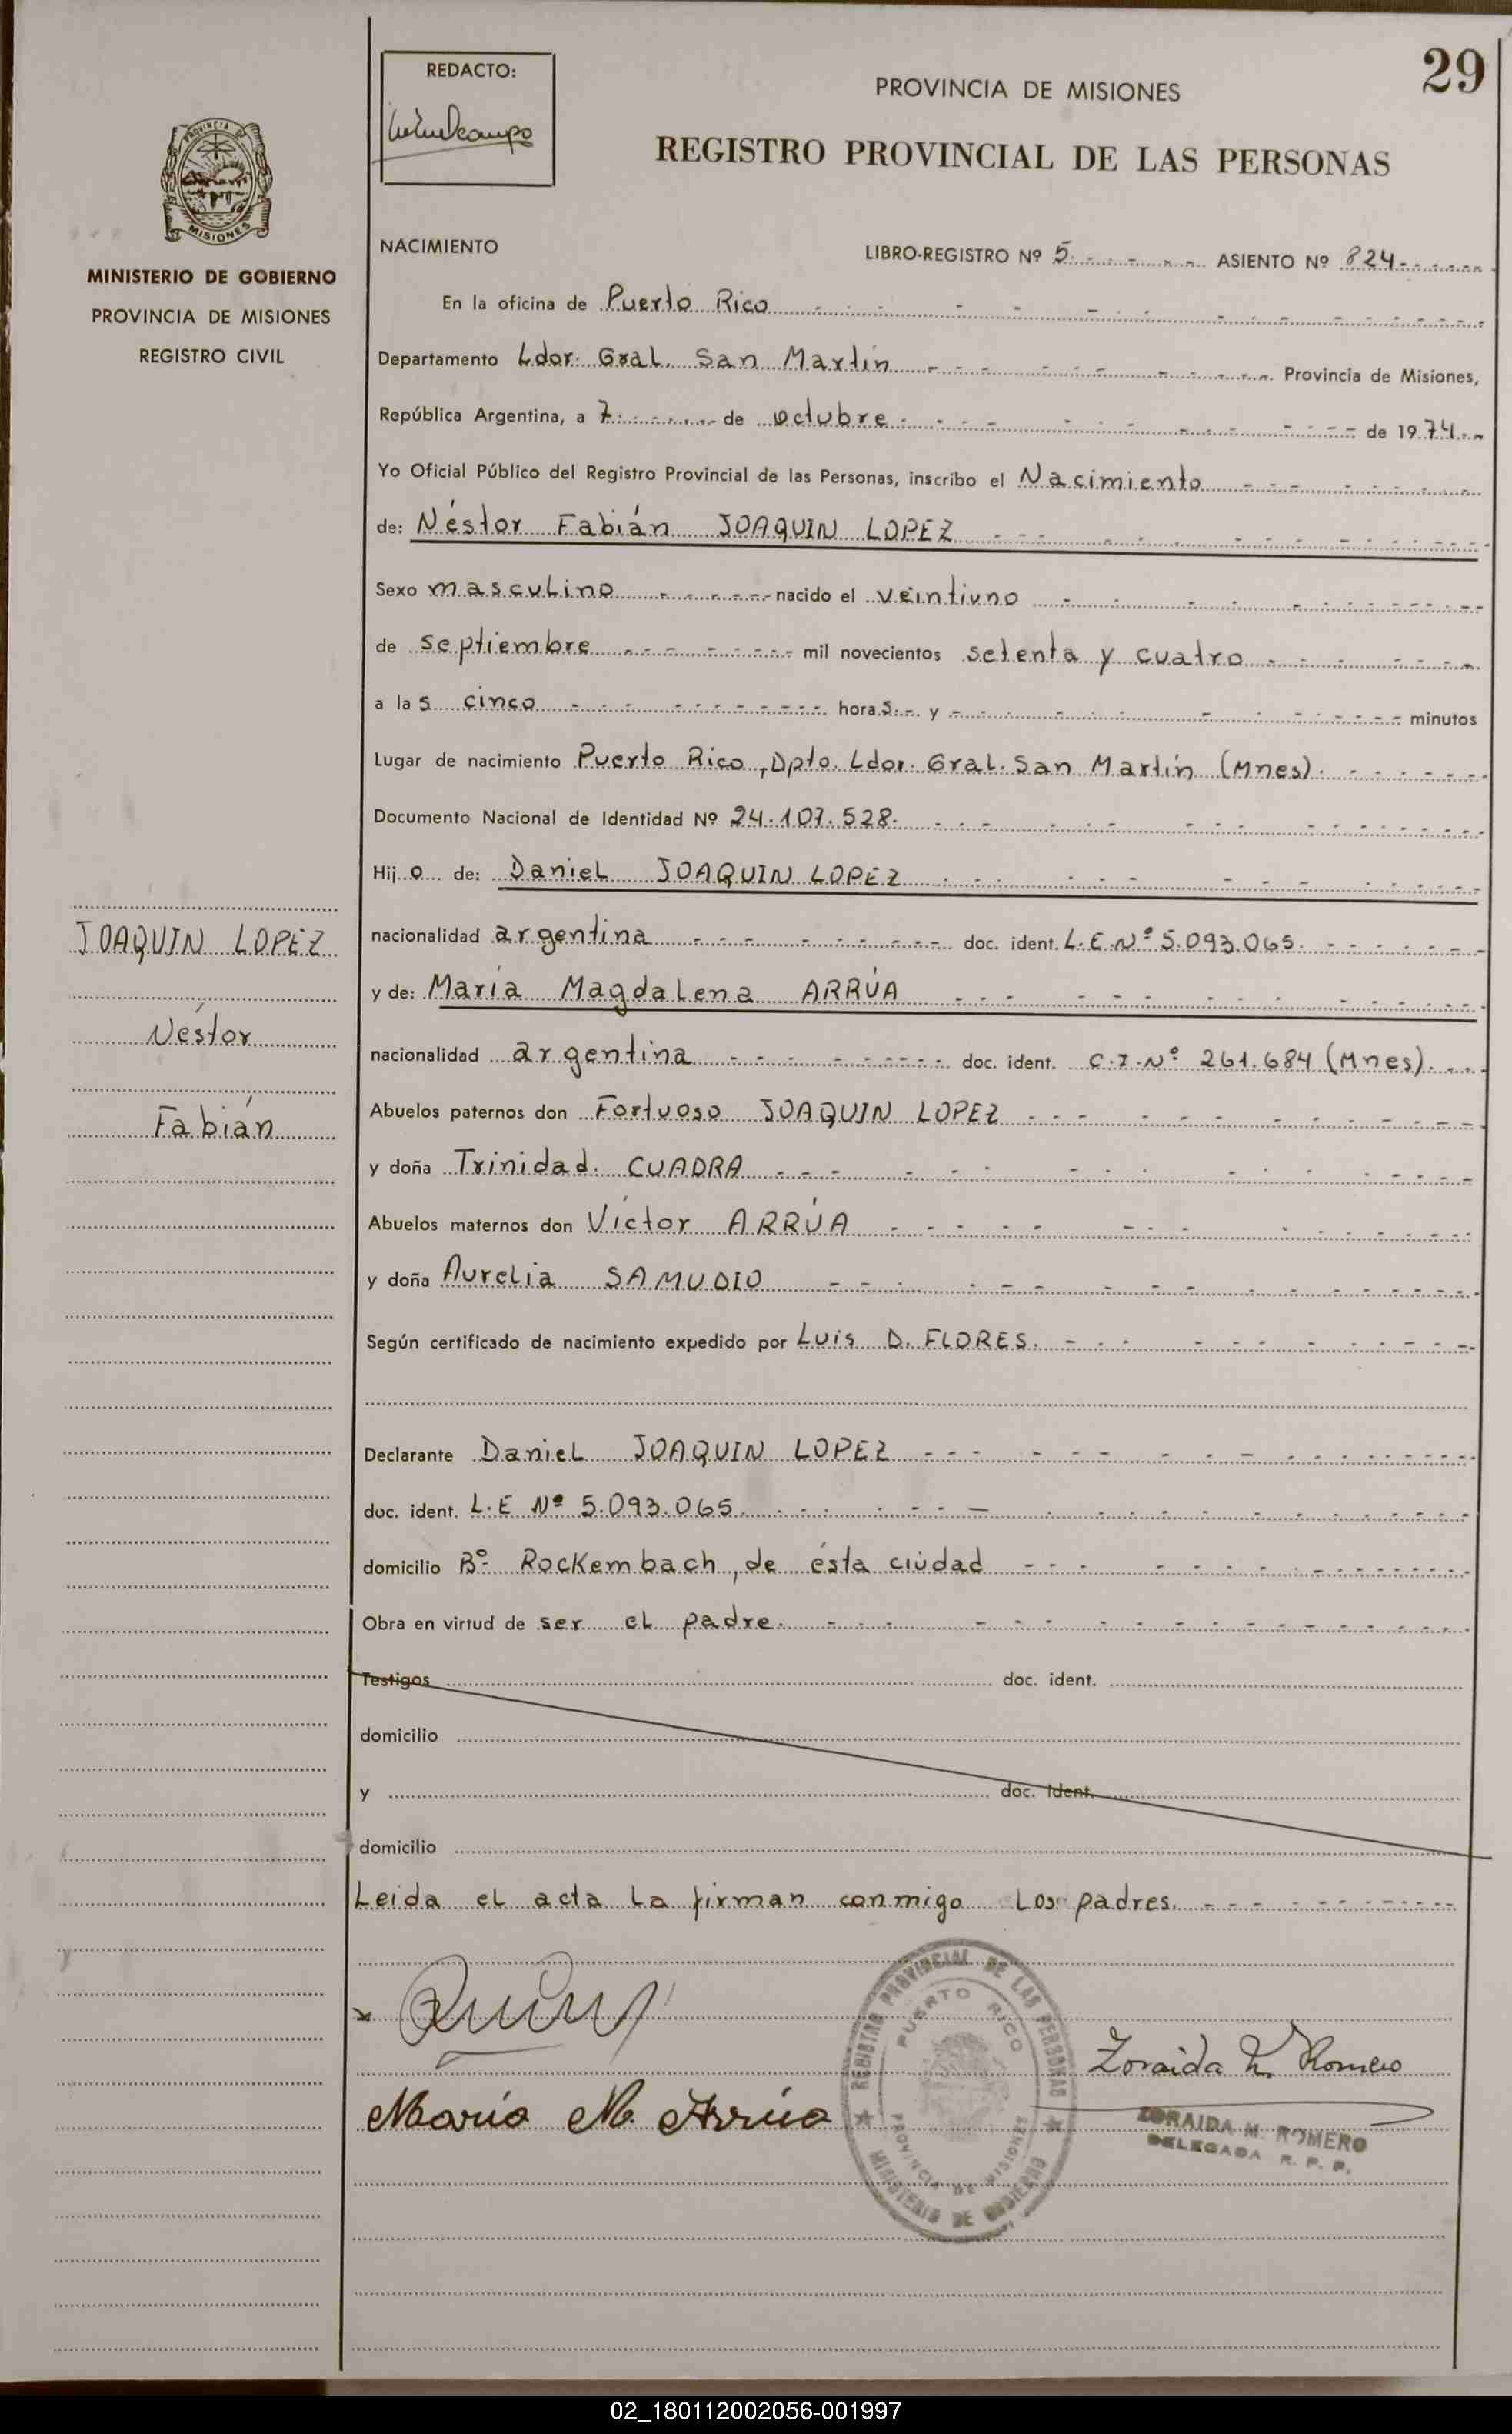 29
REDACTO:
PROVINCIA DE MISIONES
REGISTRO PROVINCIAL DE LAS PERSONAS
PROVINCIA DE
MISIONES
MINISTERIO DE GOBIERNO
PROVINCIA DE MISIONES
REGISTRO CIVIL
NACIMIENTO LIBRO-REGISTRO Nº 5 ASIENTO Nº 824
En la oficina de Puerto Rico
Departamento Ldor. Gral. San Martín Provincia de Misiones,
República Argentina, a 7 de octubre de 1974
Yo Oficial Público del Registro Provincial de las Personas, inscribo el Nacimiento
de: Néstor Fabián JOAQUIN LOPEZ
Sexo masculino nacido el veintiuno
de septiembre mil novecientos setenta y cuatro
a las cinco horas y minutos
Lugar de nacimiento Puerto Rico, Dpto. Ldor. Gral. San Martín (Mnes).
Documento Nacional de Identidad Nº 24.107.528.
Hijo de: Daniel JOAQUIN LOPEZ
JOAQUIN LOPEZ
Néstor
Fabián
nacionalidad argentina doc. ident. L.E.Nº 5.093.065.
y de: María Magdalena ARRÚA
nacionalidad argentina doc. ident. C.I.Nº 261.684 (Mnes).
Abuelos paternos don Fortuoso JOAQUIN LOPEZ
y doña Trinidad. CUADRA
Abuelos maternos don Víctor ARRÚA
y doña Aurelia SAMUDIO
Según certificado de nacimiento expedido por Luis D. FLORES.
Declarante Daniel JOAQUIN LOPEZ
doc. ident. L.E Nº 5.093.065.
domicilio Bº Rockembach, de ésta ciudad
Obra en virtud de ser el padre.
Testigos doc. ident.
domicilio
y doc. ident.
domicilio
Leida el acta la firman conmigo los padres.
María M. Arrúa
REGISTRO PROVINCIAL DE LAS PERSONAS
PUERTO RICO
PROVINCIA DE MISIONES
MINISTERIO DE GOBIERNO
Zoraida M. Romero
ZORAIDA M. ROMERO
DELEGADA R. P. P.
02_180112002056-001997